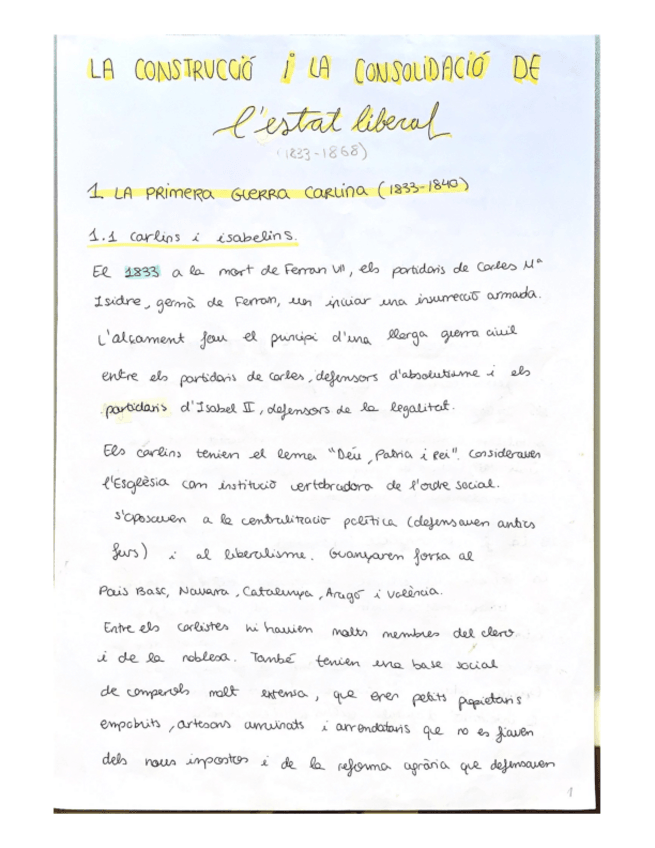 LA CONSTRUCCIÓ i LA CONSOLIDACIÓ DE
l'estat liberal
(1833-1868)
1. LA PRIMERA GUERRA CARLINA (1833-1840)
1.1 Carlins i isabelins.
El 1833 a la mort de Ferran VII, els partidaris de Carles Mª
Isidre, germà de Ferran, van iniciar una insurrecció armada.
L'alçament fou el principi d'una llarga guerra civil
entre els partidaris de Carles, defensors d'absolutisme i els
partidaris d'Isabel II, defensors de la legalitat.
Els carlins tenien el lema "Déu, Patria i Rei". Consideraven
l'Església com institució vertebradora de l'ordre social.
S'oposaven a la centralització política (defensaven antics
furs) i al liberalisme. Guanyaren força al
País Basc, Navarra, Catalunya, Aragó i València.
Entre els carlistes hi havien molts membres del clero
i de la noblesa. També tenien una base social
de camperols molt extensa, que eren petits propietaris
empobrits, artesans arruïnats i arrendataris que no es fiaven
dels nous impostos i de la reforma agrària que defensaven
1